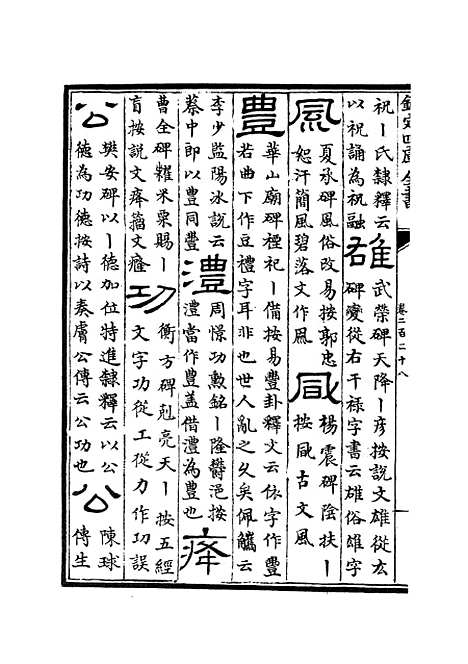 欽定四庫全書
卷二百二十八
祝丨氏隸釋云
以祝誦為祝融
雄
武榮碑天降丨彦按說文雄從玄
碑變從右干祿字書云雄俗雄字
風
夏承碑風俗改易按郭忠
恕汗簡風碧落文作凬
凬
楊震碑陰扶丨
按凬古文風
豊
華山廟碑禋祀丨備按易豐卦釋文云依字作豐
若曲下作豆禮字耳非也世人亂之久矣佩觿云
李少監陽冰說云
蔡中郎以豊同豐
澧
周憬功勲銘丨隆欝浥按
澧當作豐蓋借澧為豐也
㾭
曹全碑糴米粟賜丨
盲按說文㾭籀文癃
功
衡方碑剋亮天丨按五經
文字功從工從力作㓛誤
公
樊安碑以丨德加位特進隸釋云以公
德為功德按詩以奏膚公傳云公功也
公
陳球
傳生